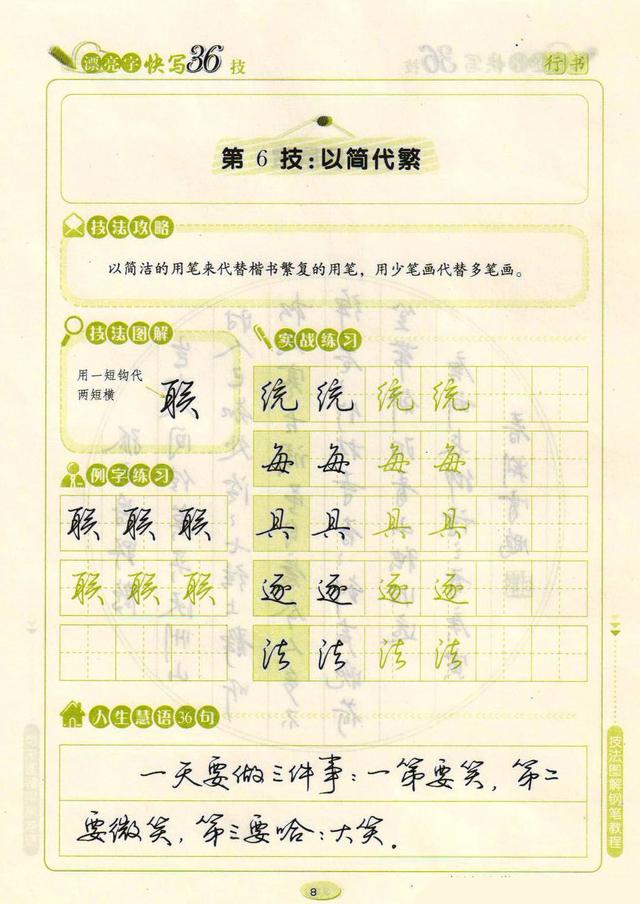 漂亮字快写36技
行书
第6技:以简代繁
技法攻略
以简洁的用笔来代替楷书繁复的用笔，用少笔画代替多笔画。
技法图解
用一短钩代
两短横
联
例字练习
联 联 联
联 联 联
实战练习
统 统 统 统
每 每 每 每
具 具 具 具
逐 逐 逐 逐
法 法 法 法
人生慧语36句
一天要做三件事:一第要笑，第二
要微笑，第三要哈:大笑。
技法图解钢笔教程
8